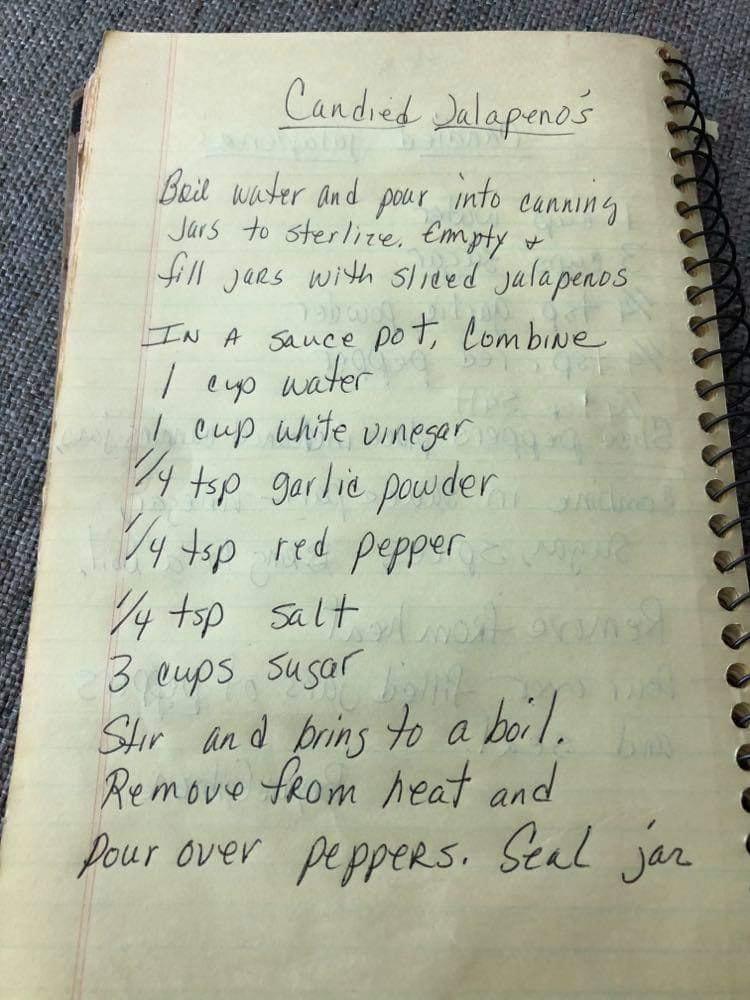 Candied Jalapeno's
Boil water and pour into canning
Jars to sterlize. Empty +
fill jars with sliced jalapenos
In a sauce pot, Combine
1 cup water
1 cup white vinegar
1/4 tsp garlic powder
1/4 tsp red pepper
1/4 tsp salt
3 cups sugar
Stir and bring to a boil.
Remove from heat and
Pour over peppers. Seal jar